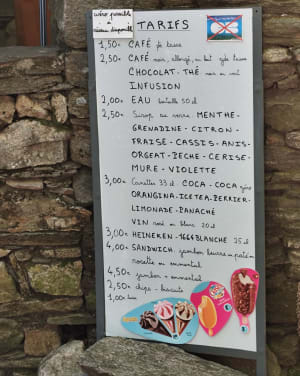 TARIFS
1,50€ CAFÉ pte tasse
2,50€ CAFÉ noir, allongé, au lait gde tasse
CHOCOLAT - THÉ noir ou vert
INFUSION
2,00€ EAU bouteille 50 cl
2,50€ Sirop au verre MENTHE -
GRENADINE - CITRON -
FRAISE - CASSIS - ANIS -
ORGEAT - PÊCHE - CERISE -
MURE - VIOLETTE
3,00€ Canettes 33 cl COCA - COCA zéro
ORANGINA - ICE TEA - PERRIER -
LIMONADE - PANACHÉ
VIN rosé ou blanc 20 cl
3,00€ HEINEKEN - 1664 BLANCHE 25 cl
4,00€ SANDWICH jambon beurre ou pâté ou
rosette ou emmental
4,50€ jambon + emmental
2,50€ chips - biscuits
1,00€